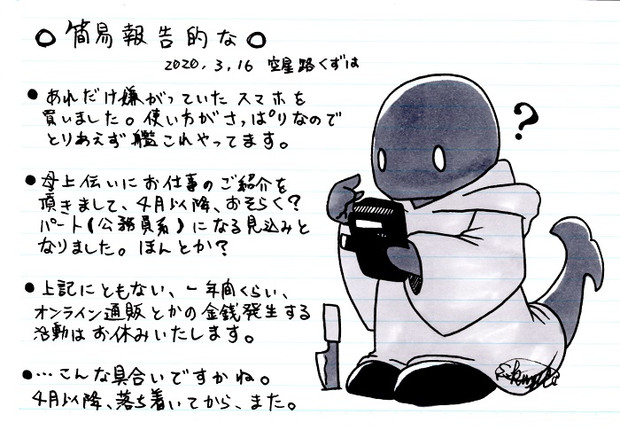 ○ 簡易報告的な ○
2020.3.16 空星路くずは
● あれだけ嫌がっていたスマホを
買いました。使い方がさっぱりなので
とりあえず艦これやってます。
● 母上伝いにお仕事のご紹介を
頂きまして、4月以降、おそらく?
パート(公務員系)になる見込みと
なりました。ほんとか?
● 上記にともない、一年間くらい、
オンライン通販とかの金銭発生する
活動はお休みいたします。
● …こんな具合いですかね。
4月以降、落ち着いてから、また。
?